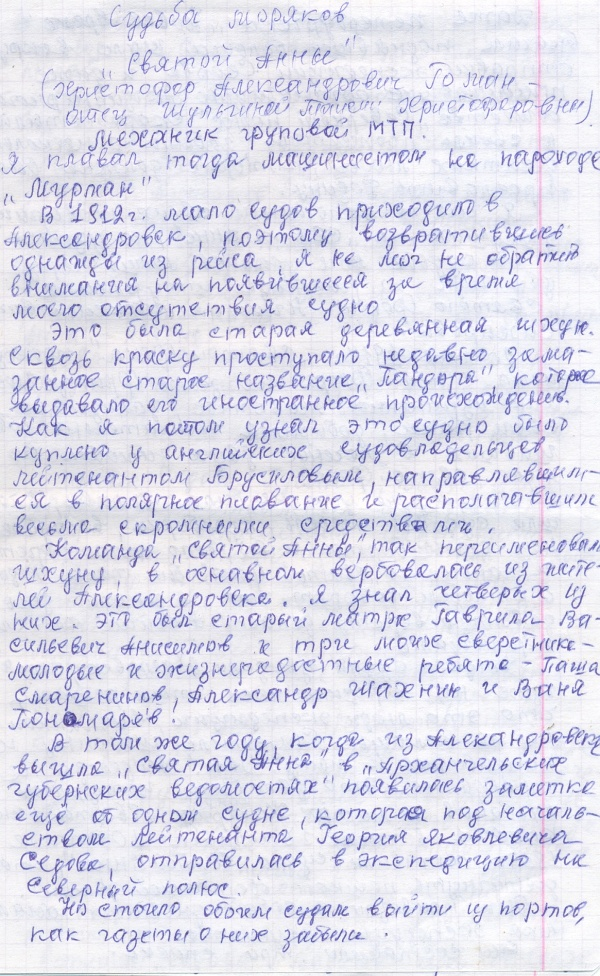 Судьба моряков
"Святой Анны"
(Христофор Александрович Гоман -
отец Шульгиной Таисии Христофоровны)
Механик груповой МТП.
Я плавал тогда машинистом на пароходе
"Мурман"
В 1912г. мало судов приходило в
Александровск, поэтому возвратившись
однажды из рейса, я не мог не обратить
внимания на появившееся за время
моего отсутствия судно
Это была старая деревянная шхуна.
Сквозь краску проступало недавно зама-
занное старое название "Пандора", которое
выдавало его иностранное происхождение.
Как я потом узнал это судно было
куплено у английских судовладельцев
лейтенантом Брусиловым, направлявшим-
ся в полярное плавание и располагавшим
весьма скромными средствами.
Команда "Святой Анны", так переименовали
шхуну в основном вербовалась из жите-
лей Александровска. Я знал четверых из
них. Это был старый матрос Гаврила Ва-
сильевич Анисимов и три моих сверстника -
молодые и жизнерадостные ребята - Паша
Смаренинов, Александр Шахнин и Ваня
Пономарёв.
В том же году, когда из Александровска
вышла "Святая Анна" в "Архангельских
губернских ведомостях" появилась заметка
еще об одном судне, которая под началь-
ством лейтенанта Георгия Яковлевича
Седова, отправилась в экспедицию на
Северный полюс.
Но стоило обоим судам выйти из портов,
как газеты о них забыли.